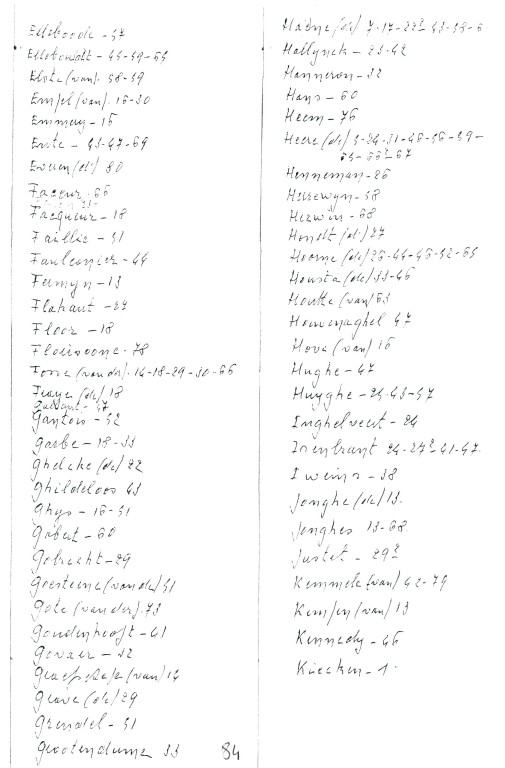 Elleboode - 57
Ellebowdt - 45-59-65
Elste (van). 58-59
Empel (van). 16-30
Emmery - 15
Ente - 43-47-69
Everen (d') 80
Faceur. 66
Facqueur - 18
Faillie - 51
Faulconier - 44
Femyn - 13
Flahaut - 27
Floor - 18
Florisoone. 78
Forre (vander). 14-18-29-30-66
Fraye (de) 18
57
Gantois - 52
Garbe - 18-33
Ghelcke (de) 22
Ghildeloos 43
Ghys - 16-51
Gobert - 60
Gobrecht - 29
Goesteene (vande) 51
Gote (vander). 73
Goudenhooft - 41
Govaer - 32
Graefschepe (van) 14
Grave (de) 29
Grendel - 51
Grootendume 33
84
Haene (de) 7-17-22²-43-58-6
Hallynck - 23-42
Hanneron - 32
Hans - 60
Heem - 76
Heere (de) 5-24-31-48-56-59-
65-66²-67
Henneman - 26
Herrewyn - 58
Herwin - 68
Hondt (d') 27
Hoorne (de) 26-44-46-52-65
Housta (de) 33-46
Houtte (van) 63
Houvenaghel 47
Hove (van) 16
Hughe - 47
Huyghe - 24-43-57
Inghelvert - 24
Isenbrant 24-27²-41-47.
Iweins - 38
Jonghe (de) 13.
Jonghes 13-68
Justet - 29²
Kemmele (van) 42-79
Kempen (van) 13
Kennedy - 46
Kiecken - 1.